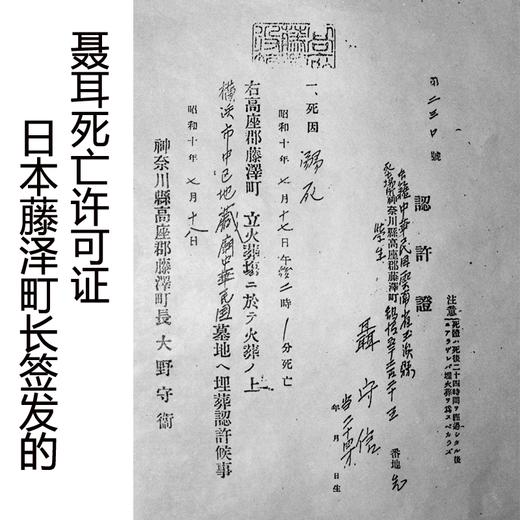 聂耳死亡许可证
日本藤泽町长签发的
第二三〇號
認許證
注意
死體ハ死後二十四時間ヲ經過シタル後
ニアラザレバ埋火葬ヲ爲スベカラズ
本籍 中華民國雲南省玉溪縣
死亡場所 神奈川縣高座郡藤澤町 番地
學生
聶守信
當二十四年 年 月 日生
一、死因 溺死
昭和十年七月十七日午後二時 分死亡
右高座郡藤澤町 立火葬場ニ於テ火葬ノ上
橫浜市中区地蔵廟中華民國墓地へ埋葬認許候事
昭和十年七月十八日
神奈川縣高座郡藤澤町長 大野守衞